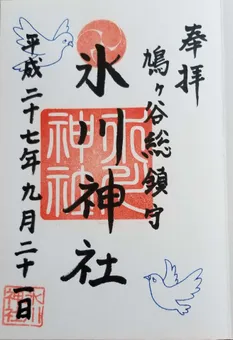 奉拝
鳩ヶ谷総鎮守
氷川神社
平成二十七年九月二十一日
氷川
神社
氷川
神社